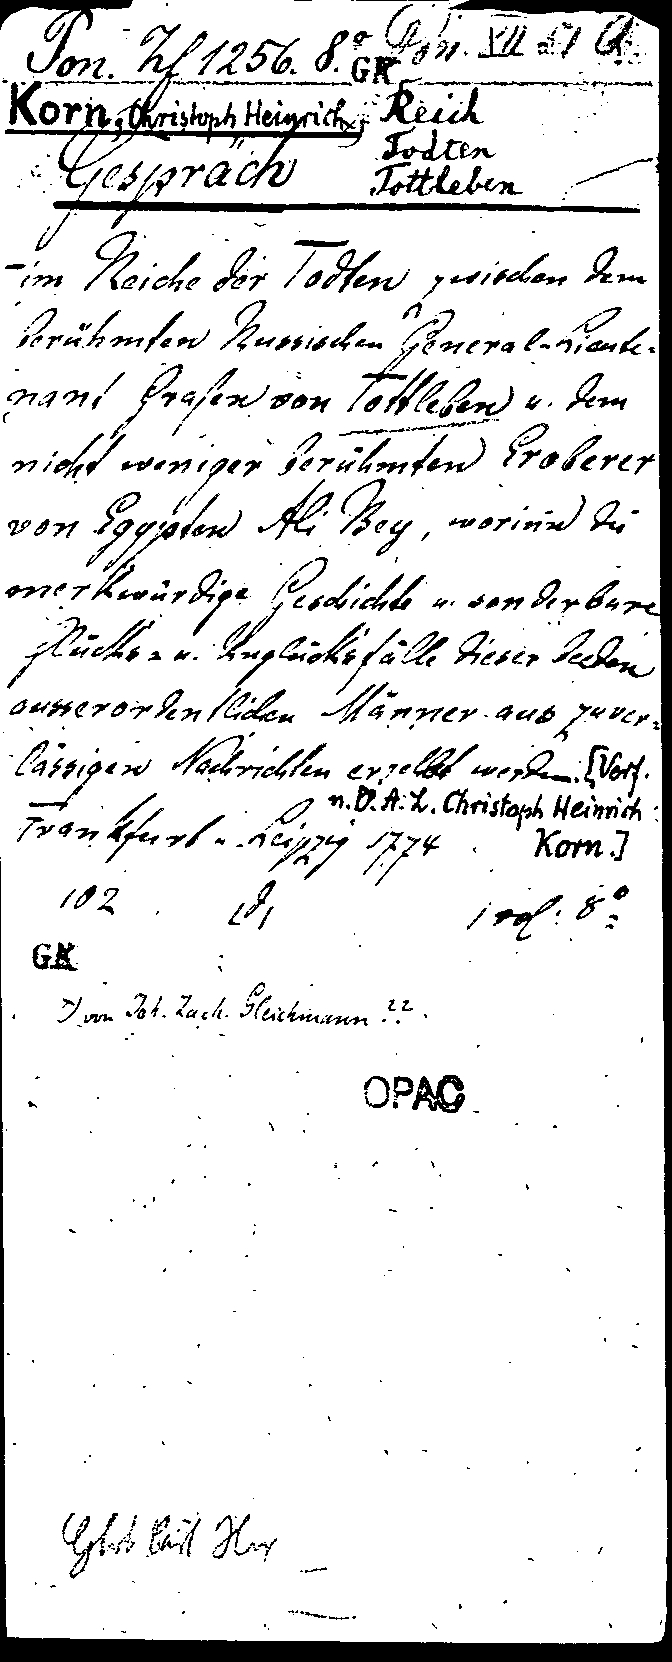 Pon. Zf 1256. 8.º Pon. XII 51
GK
Korn, Christoph Heinrich, Reich
Todten
Gespräch Tottleben
- im Reiche der Todten zwischen dem
berühmten Russischen General-Lieute-
nant Grafen von Tottleben u. dem
nicht weniger berühmten Eroberer
von Egypten Ali Bey, worinn die
merkwürdige Geschichte u. sonderbare
Glücks- u. Unglücksfälle dieser beeden
ausserordentlichen Männer aus zuver-
lässigen Nachrichten erzehlt werden. [Verf.
n. D.A.L. Christoph Heinrich
Frankfurt u. Leipzig 1774 Korn.]
102 1 vol. 8º
GK
?) von Joh. Zach. Gleichmann??
OPAC